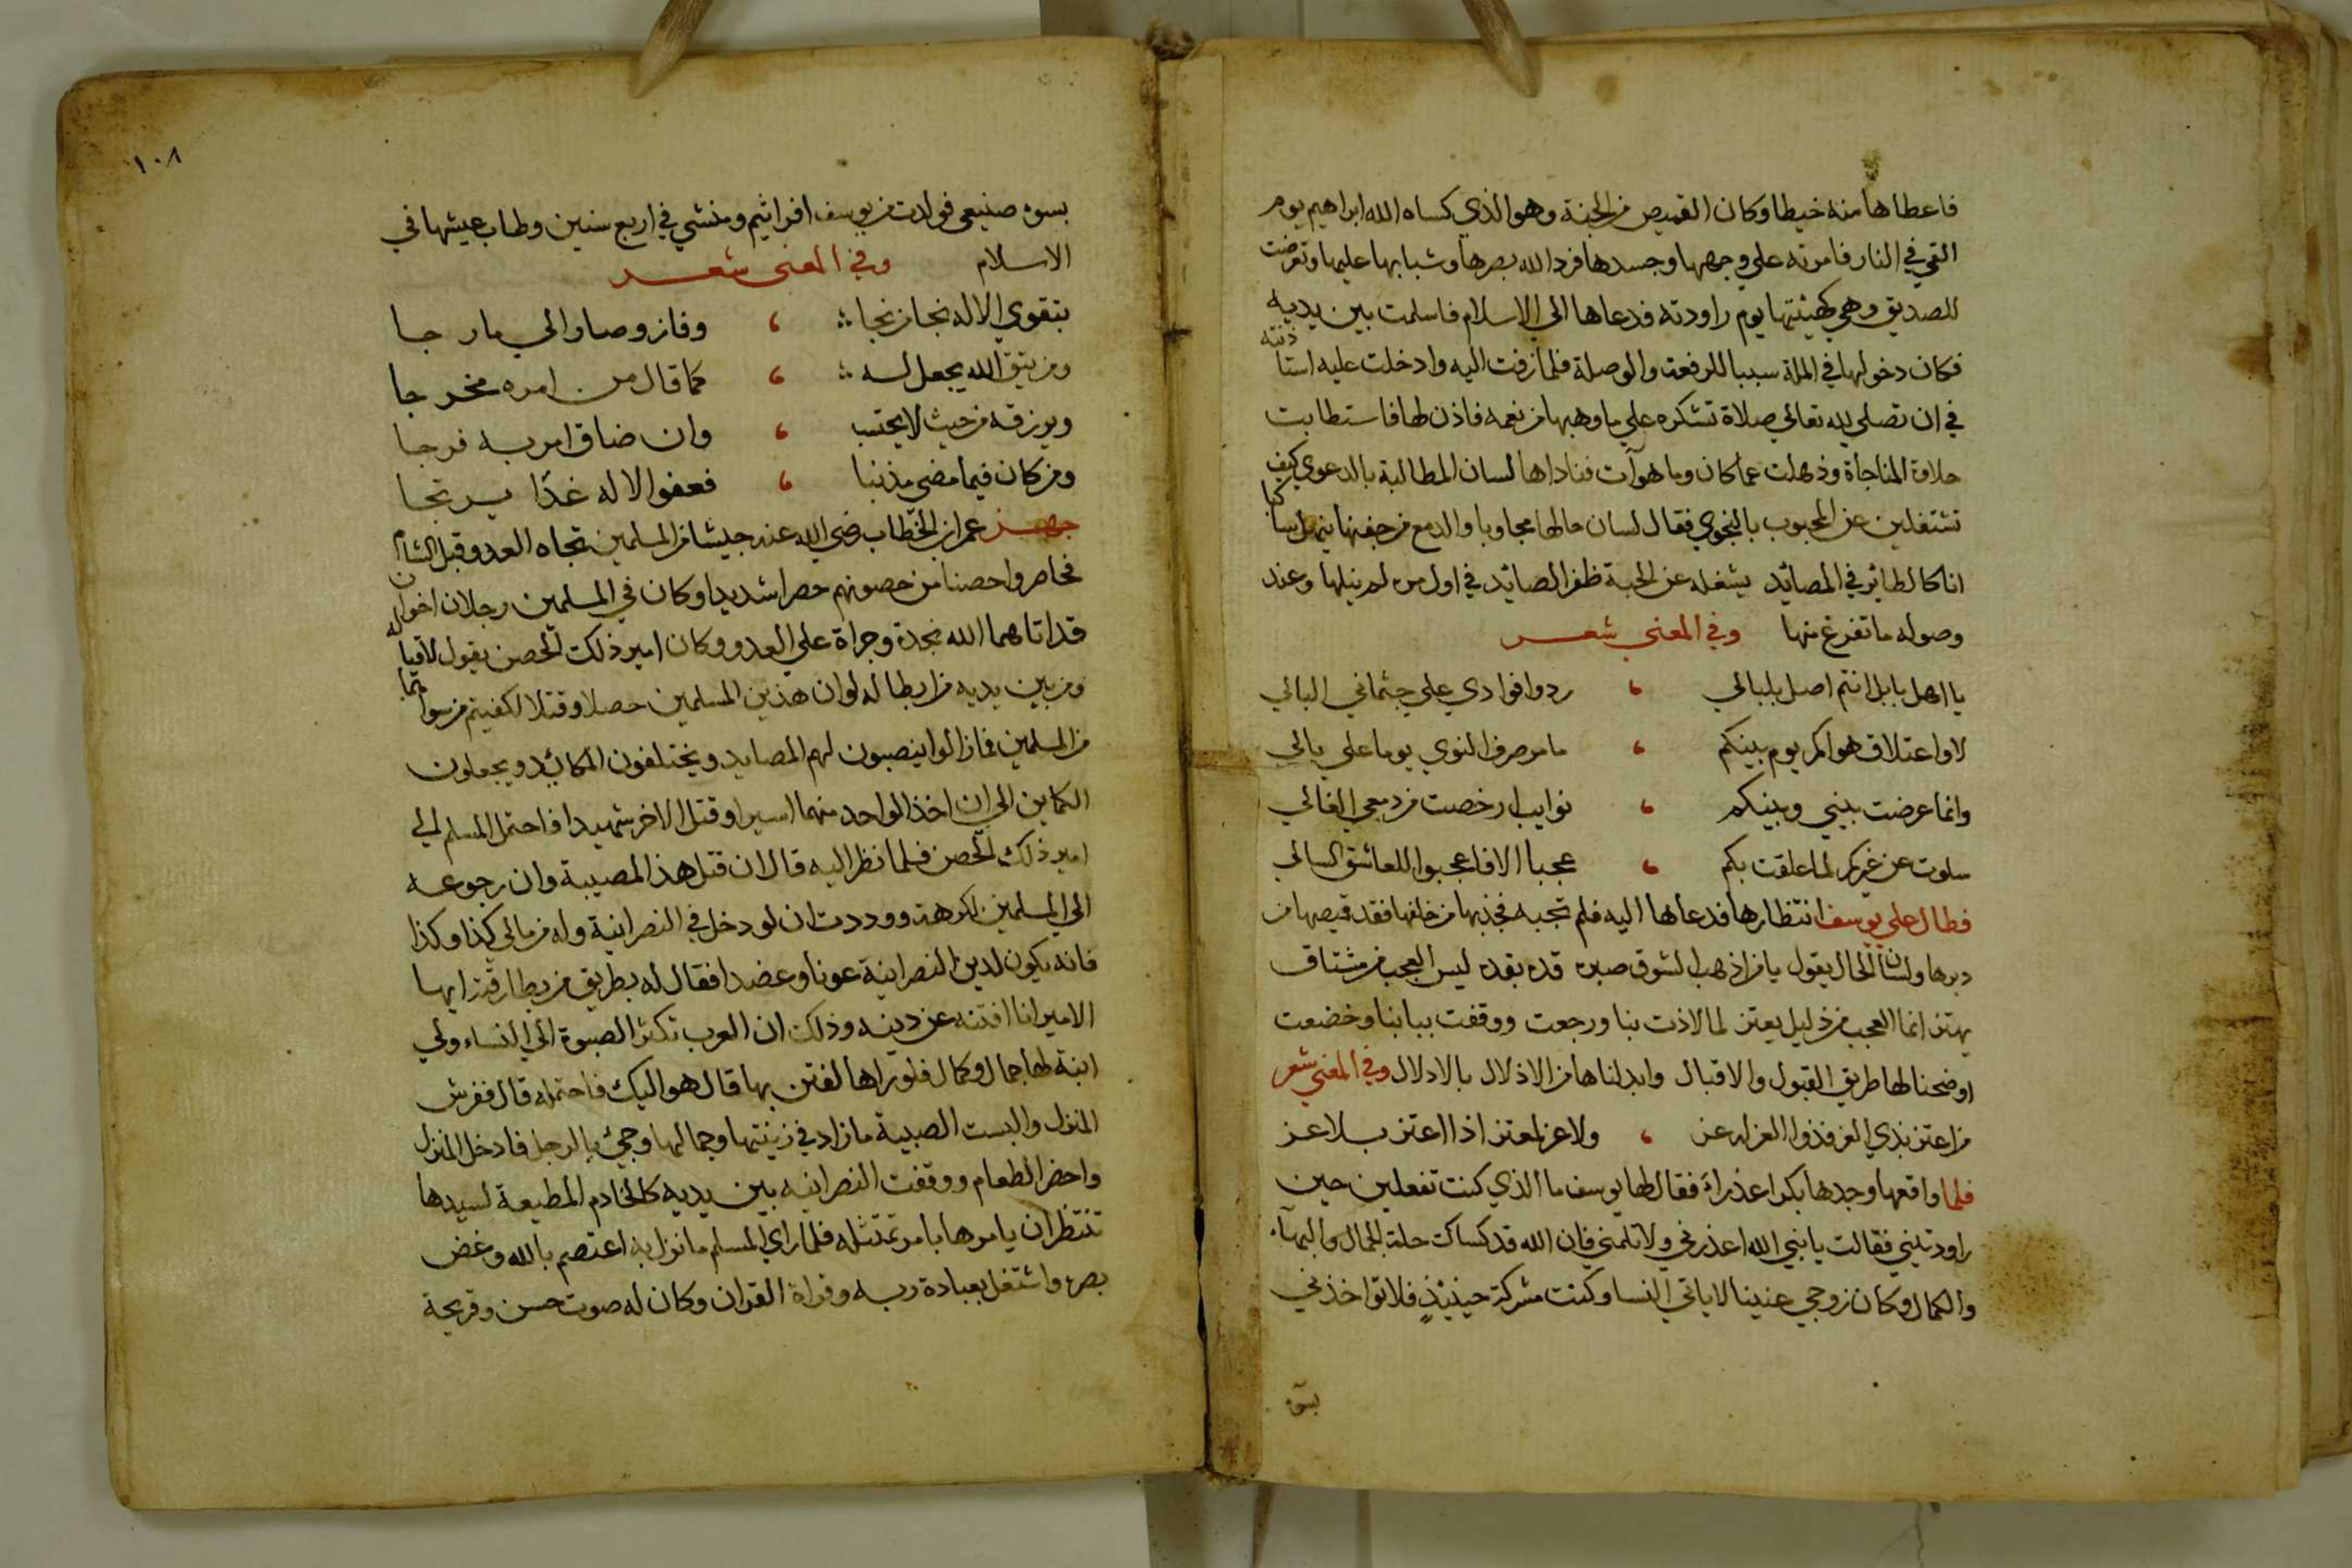 فاعطاها منه خيطا وكان القميص من الجنة وهو الذي كساه الله ابراهيم يوم
القي في النار فامرته علي وجهها وجسدها فرد الله بصرها وشبابها عليها وتعرضت
للصديق وهي كهيئتها يوم راودته فدعاها الي الاسلام فاسلمت بين يديه
فكان دخولها في الملة سببا للرفعة والوصلة فلما زفت اليه وادخلت عليه استاذنته
في ان تصلي لله تعالي صلاة تشكره علي ما وهبها من نعمه فاذن لها فاستطابت
حلاوة المناجاة وذهلت عما كان وما هو آت فناداها لسان المطالبة بالدعوي كيف
تشتغلين عن المحبوب بالنجوي فقال لسان حالها مجاوبا والدمع من جفنها ينهل ساكبا
انا كالطاير في المصائد يشغله عن الحبة ظفر الصائد في اول مره لم ينلها وعند
وصوله ما تفرغ منها وفي المعني شعر
يا اهل بابل انتم اصل بلبالي ، ردوا فوادي علي جثماني البالي
لا واعتلاق هواكم يوم بينكم ، ما مر صرف النوي يوما علي بالي
وانما عرضت بيني وبينكم ، نوايب ارخصت من دمعي الغالي
سلوت عن غيركم لما علقت بكم ، عجبا الا فاعجبوا للعاشق السالي
فطال علي يوسف انتظارها فدعاها اليه فلم تجبه فجذبها من خلفها فقد قميصها من
دبرها ولسان الحال يقول يا من اذهب الشوق صبره قده بقده ليس العجب من مشتاق
يهتز انما العجب من ذليل يعتز لما لاذت بنا ورجعت ووقفت ببابنا وخضعت
اوضحنا لها طريق القبول والاقبال وابدلناها من الاذلال بالادلال وفي المعني شعر
من اعتز بذي العز فذوا العز له عز ، ولا عز لمعتز اذا اعتز بلا عز
فلما واقعها وجدها بكرا عذراء فقال لها يوسف ما الذي كنت تفعلين حين
راودتيني فقالت يا نبي الله اعذرني ولا تلمني فان الله قد كساك حلة الجمال والبهاء
والكمال وكان زوجي عنينا لا ياتي النسا وكنت مشركة حينئذ فلا تواخذني
بسوء
١٠٨
بسوء صنيعي فولدت من يوسف افراثيم ومنشي في اربع سنين وطاب عيشها في
الاسلام وفي المعني شعر
بتقوي الاله نجا من نجا ، وفاز وصار الي ما رجا
ومن يتق الله يجعل له ، كما قال من امره مخرجا
ويرزقه من حيث لا يحتسب ، وان ضاق امر به فرجا
ومن كان فيما مضي مذنبا ، فعفو الاله غدا يرتجا
جهز عمر ابن الخطاب رضي الله عنه جيشا من المسلمين تجاه العدو قبل الشام
فحاصروا حصنا من حصونهم حصرا شديدا وكان في المسلمين رجلان اخوان
قد اتاهما الله نجدة وجراة علي العدو وكان امير ذلك الحصن يقول لاقياله
ومن بين يديه من ابطاله لو ان هذين المسلمين حصلا وقتلا لكفيتم من سواهما
من المسلمين فما زالوا ينصبون لهم المصايد ويختلفون المكائد ويجعلون
الكماين الي ان اخذ الواحد منهما اسيرا وقتل الاخر شهيدا فاحتمل المسلم الي
امير ذلك الحصن فلما نظر اليه قال ان قتل هذا لمصيبة وان رجوعه
الي المسلمين لكرهة ووددت ان لو دخل في النصرانية وله من مالي كذا وكذا
فانه يكون لدين النصرانية عونا وعضدا فقال له بطريق من بطارقته ايها
الامير انا افتنه عن دينه وذلك ان العرب تكثر الصبوة الي النساء ولي
ابنة لها جمال وكمال فلو راها لفتن بها قال هو اليك فاحتمله قال ففرش
المنزل والبست الصبية ما زاد في زينتها وجمالها وجيء بالرجل فادخل المنزل
واحضر الطعام ووقفت النصرانية بين يديه كالخادم المطيعة لسيدها
تنتظر ان يامرها بامر تمتثله فلما راي المسلم ما نزل به اعتصم بالله وغض
بصره واشتغل بعبادة ربه وقراة القران وكان له صوت حسن وقريحة